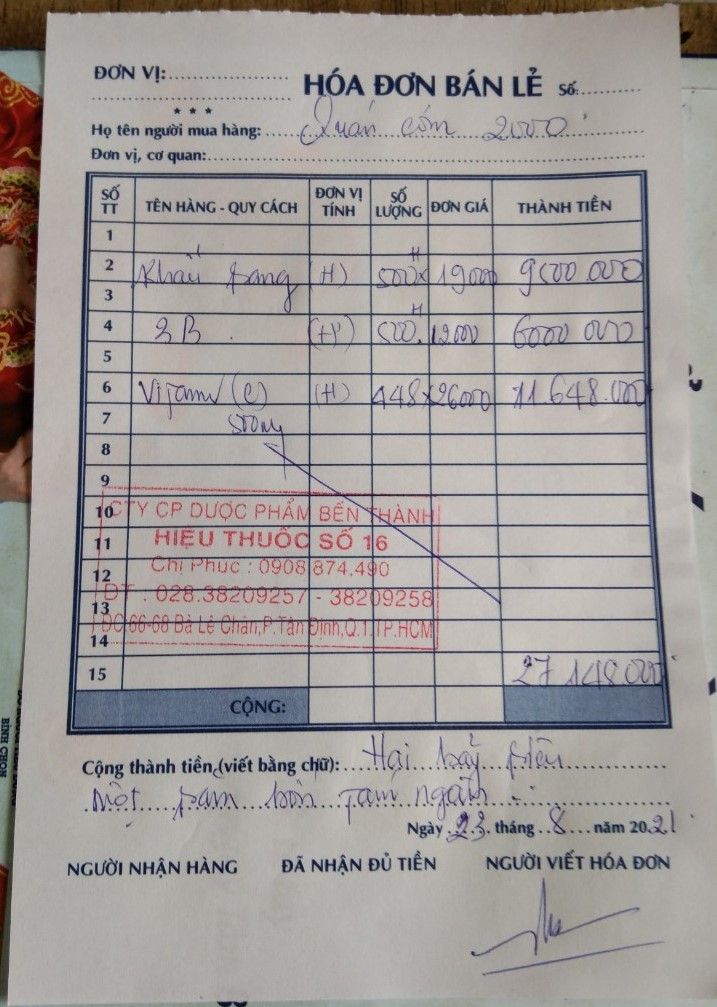 ĐƠN VỊ:
HÓA ĐƠN BÁN LẺ Số:
* * *
Họ tên người mua hàng: Quán cơm 2000
Đơn vị, cơ quan:
SỐ TT TÊN HÀNG - QUY CÁCH ĐƠN VỊ TÍNH SỐ LƯỢNG ĐƠN GIÁ THÀNH TIỀN
1
2 Khẩu trang (H) 500 H x 19000 9500.000
3
4 3B (H) 500 H . 12000 6000 000
5
6 Vitamin (C) (H) 448 x 26000 11.648.000
7 500mg
8
9
10
11
12
13
14
15 27 148.000
CTY CP DƯỢC PHẨM BẾN THÀNH
HIỆU THUỐC SỐ 16
Chị Phúc : 0908 874.490
ĐT : 028.38209257 - 38209258
ĐC 66-68 Bà Lê Chân,P.Tân Định,Q.1.TP.HCM
CỘNG:
Cộng thành tiền (viết bằng chữ): Hai bảy triệu
một trăm bốn tám ngàn
Ngày 23 tháng 8 năm 2021
NGƯỜI NHẬN HÀNG ĐÃ NHẬN ĐỦ TIỀN NGƯỜI VIẾT HÓA ĐƠN